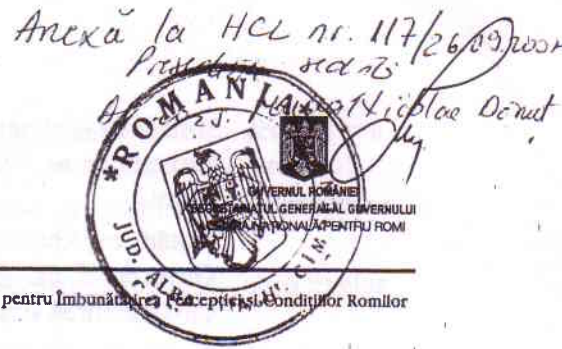 Anexă la HCL nr. 117/26.09.2007
Președinte
Nicolae Dănuț
*ROMÂNIA*
GUVERNUL ROMÂNIEI
SECRETARIATUL GENERAL AL GUVERNULUI
AGENȚIA NAȚIONALĂ PENTRU ROMI
JUD. ALBA
pentru Îmbunătățirea Percepției și Condițiilor Romilor